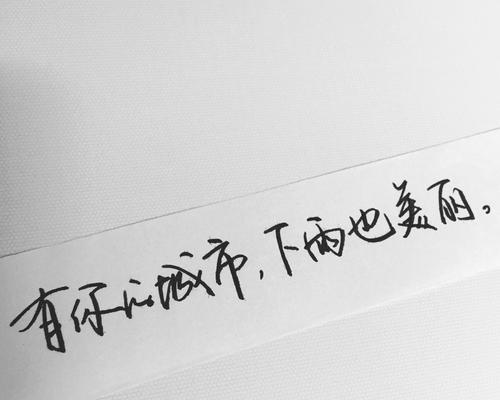 有你的城市,下雨也美丽。